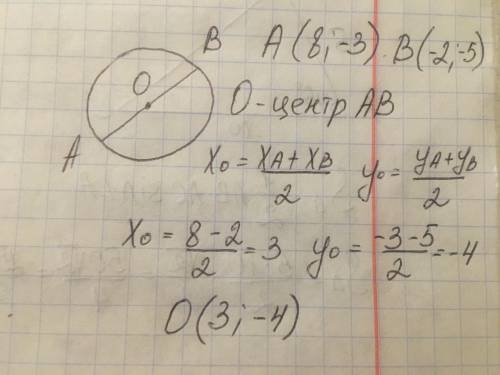 B A(8;-3). B(-2;-5)
O O-центр AB
A
x₀ = (x_A + x_B)/2 y₀ = (y_A + y_B)/2
x₀ = (8-2)/2 = 3 y₀ = (-3-5)/2 = -4
O(3;-4)